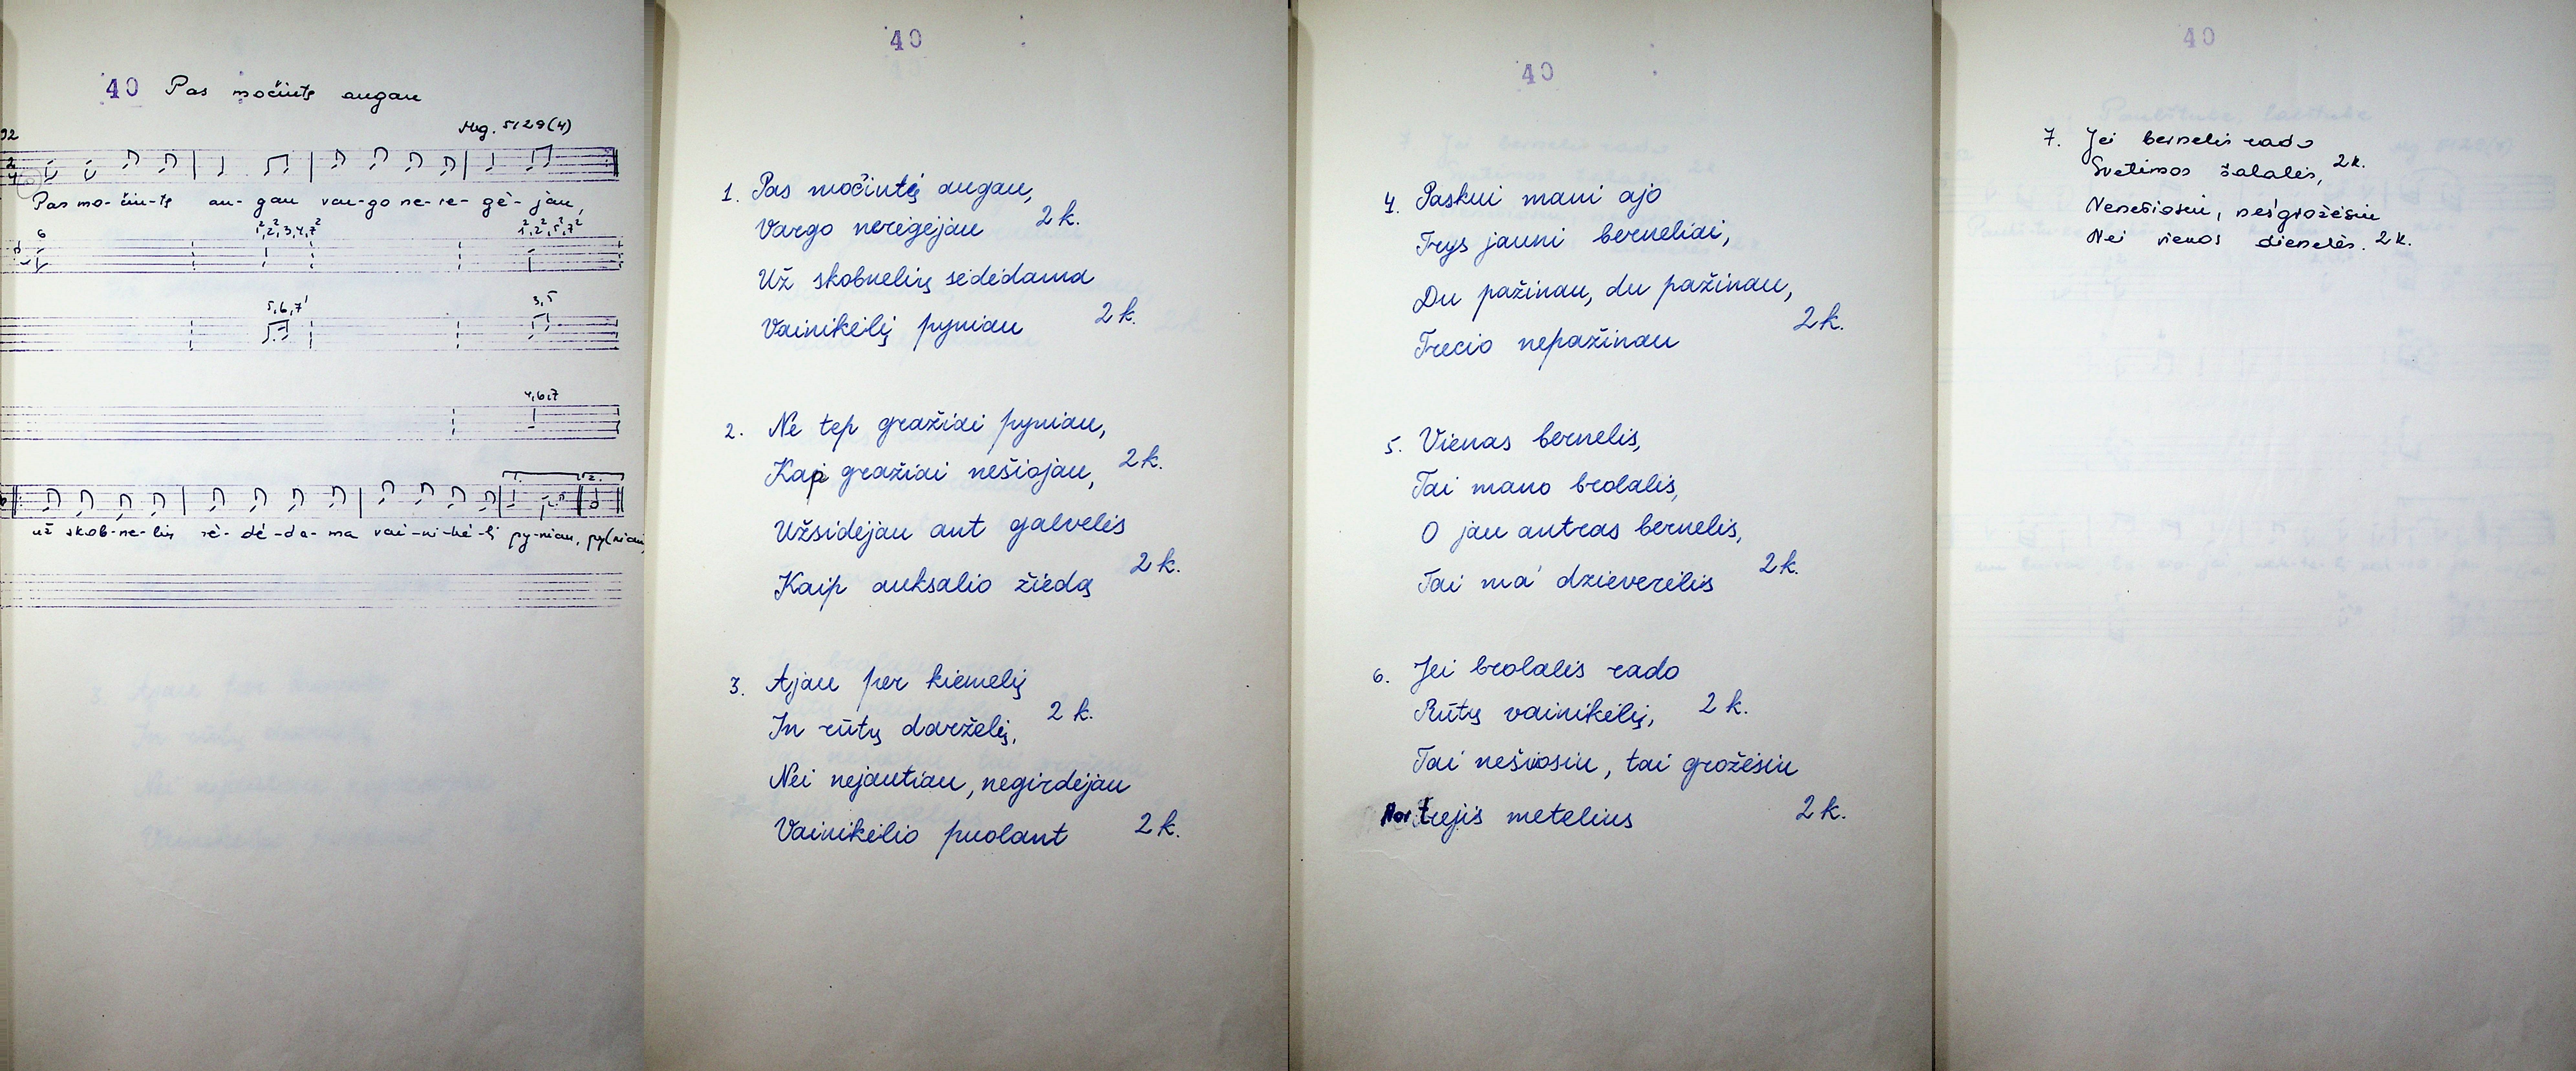 40 Pas močiutę augau
Mg. 5129(4)
Pas mo-čiu-tę au-gau var-go ne-re-gė-jau,
6 1², 2², 3, 4, 7²
5, 6, 7¹ 3, 5
4, 6, 7
už skob-ne-lių sė-dė-da-ma vai-ni-kė-lį py-niau, py(niau)
40
1. Pas močiutę augau,
Vargo neregėjau 2 k.
Už skobnelių sėdėdama
Vainikėlį pyniau 2 k.
2. Ne tep gražiai pyniau,
Kap gražiai nešiojau, 2 k.
Užsidėjau ant galvelės
Kaip auksalio žiedą 2 k.
3. Ajau per kiemelį
In rūtų darželį, 2 k.
Nei nejautiau, negirdėjau
Vainikėlio puolant 2 k.
40
4. Paskui mani ajo
Trys jauni berneliai,
Du pažinau, du pažinau,
Trečio nepažinau 2 k.
5. Vienas bernelis,
Tai mano brolalis,
O jau antras bernelis,
Tai ma' dzieverėlis 2 k.
6. Jei brolalis rado
Rūtų vainikėlį, 2 k.
Tai nešiosiu, tai grožėsiu
Nor trejis metelius 2 k.
40
7. Jei bernelis rado
Svetimos šalalės, 2 k.
Nenešiosiu, nesgrožėsiu
Nei vienos dienelės. 2 k.